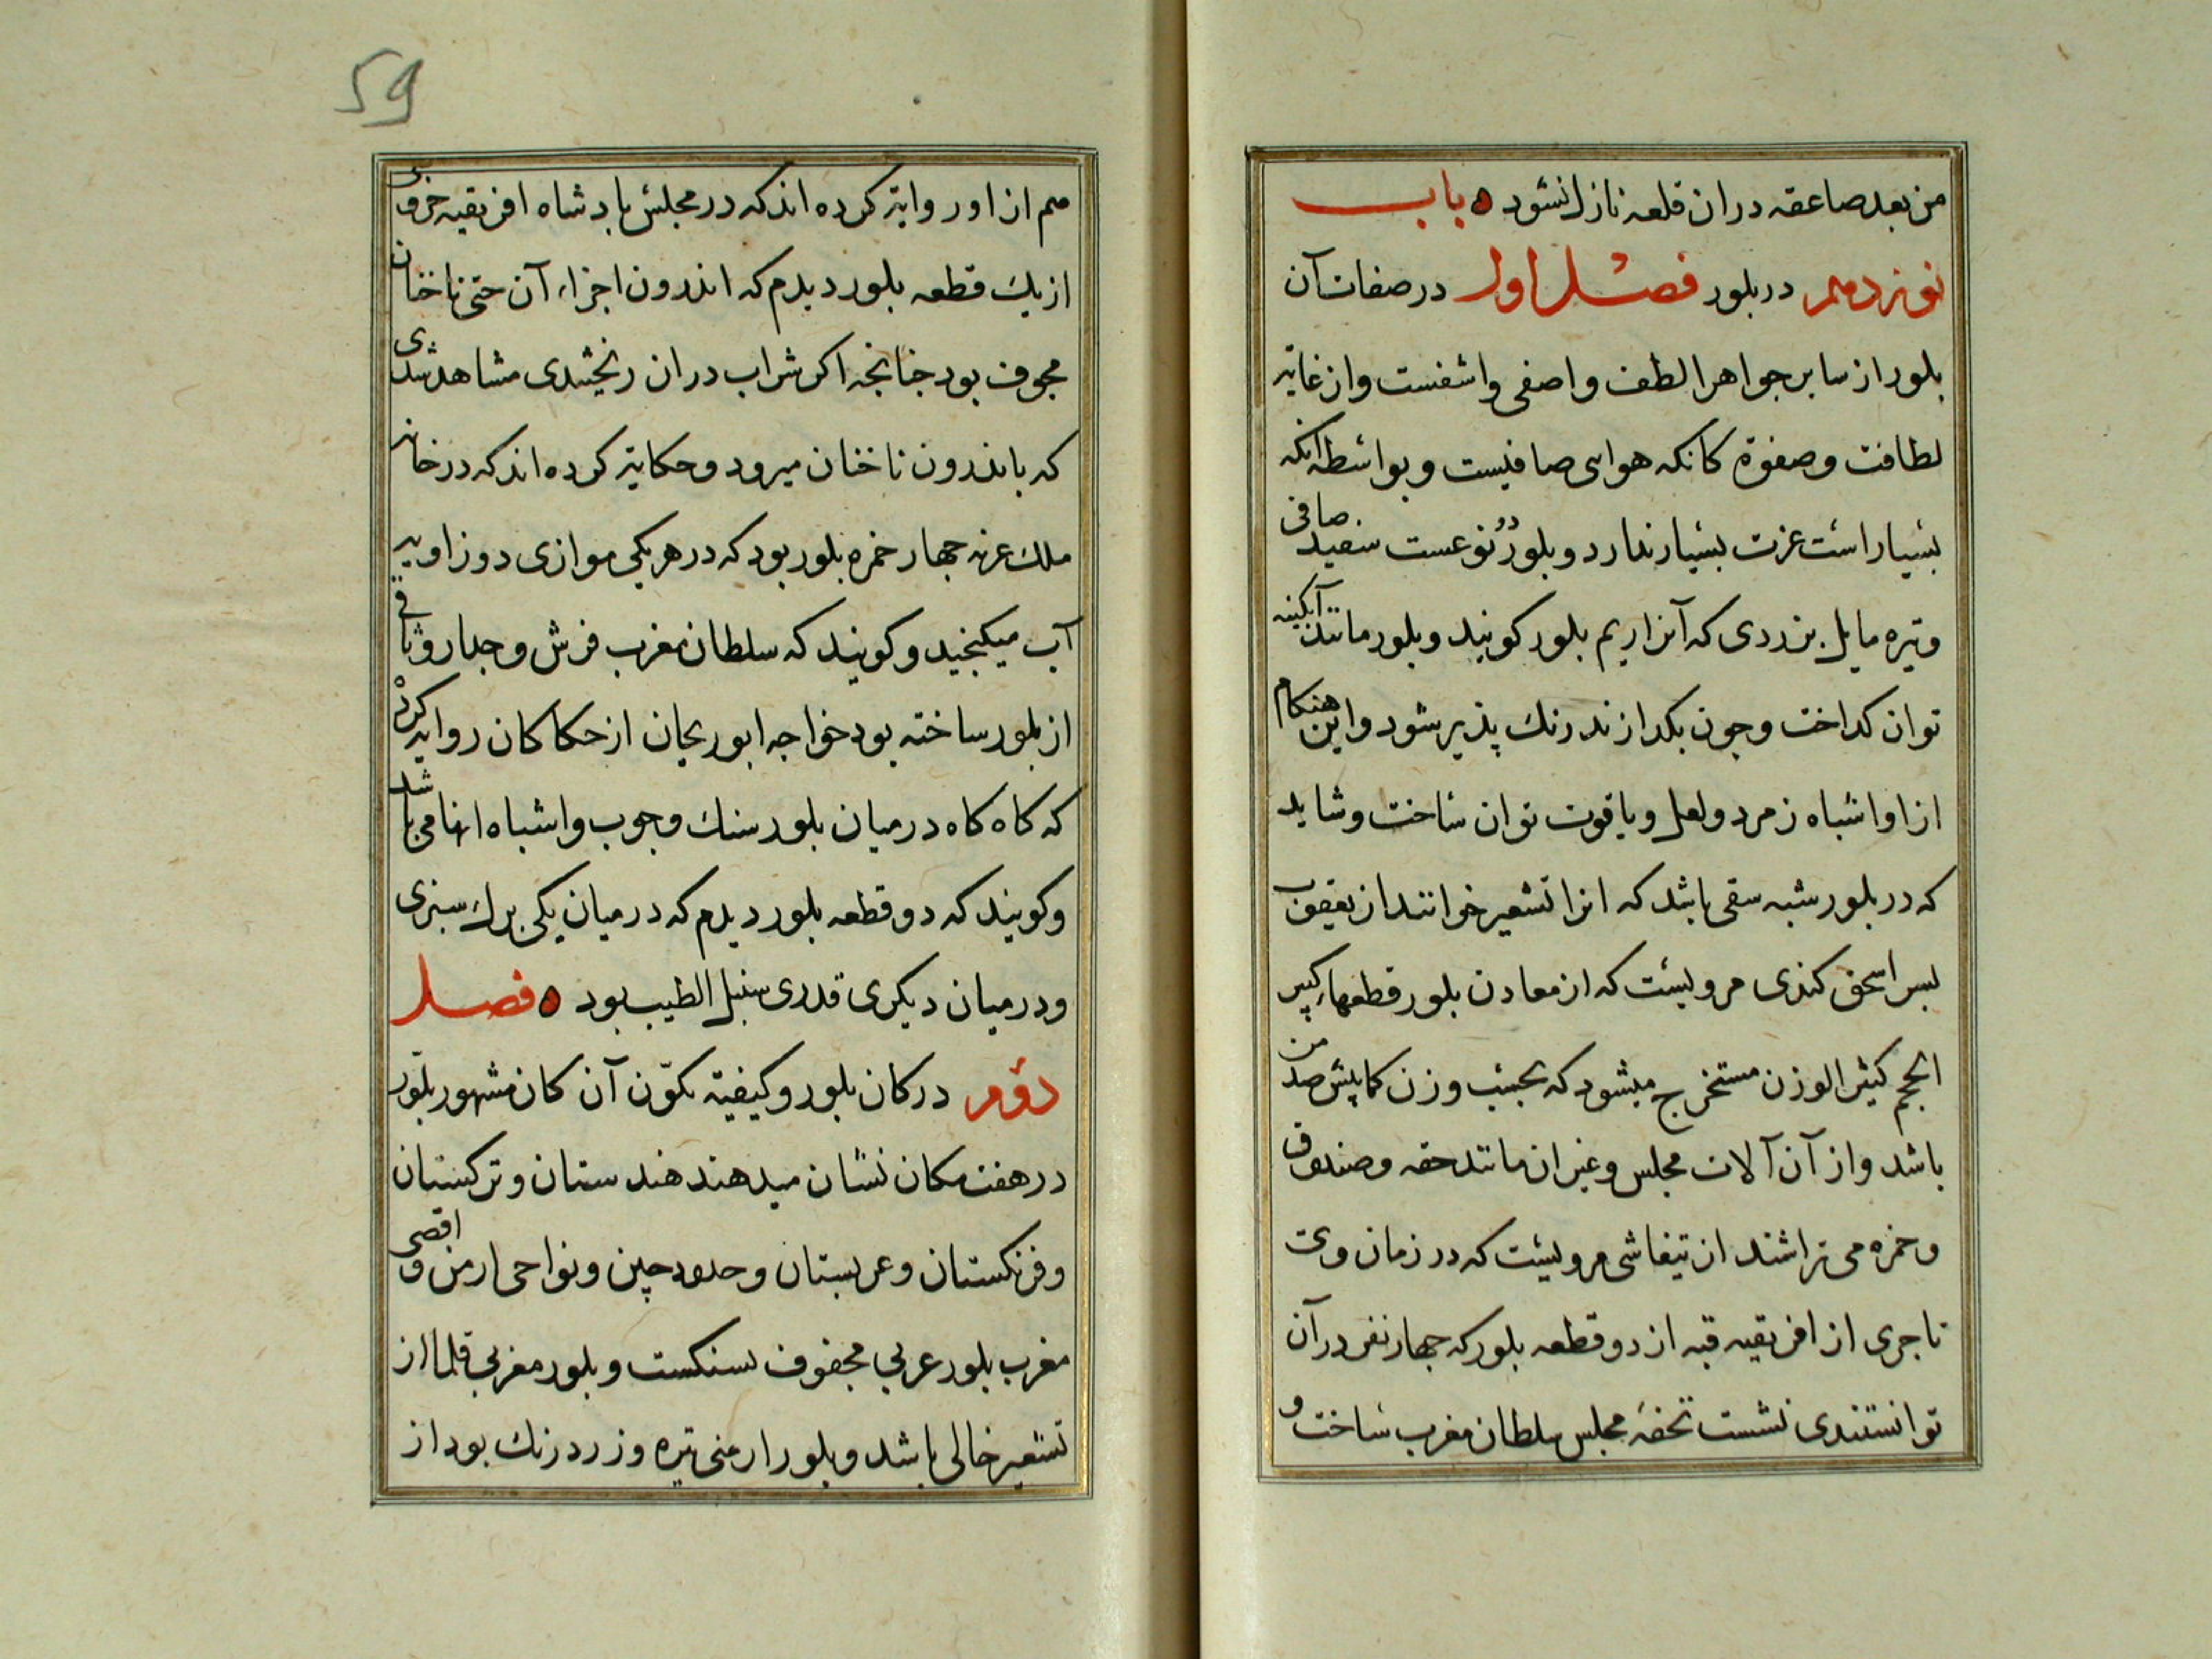 من بعد صاعقه دران قلعه نازل نشود ه باب
نوزدهم در بلور فصل اول در صفات آن
بلور از سایر جواهر الطف و اصفی و اشفست و از غایة
لطافت و صفوة کانکه هواءی صافیست و بواسطه آنکه
بسیار است عزت بسیار ندارد و بلور دو نوعست سفید صافی
و تیره مایل بزردی که آنرا ریم بلور کویند و بلور مانند آبکینه
توان کداخت و جون بکدازند رنك پذیر شود و این هنکام
ازو اشباه زمرد و لعل و یاقوت توان ساخت و شاید
که در بلور شبه سقی باشد که انرا تشعیر خوانند از یعقوب
بسر اسحق کندی مرویست که از معادن بلور قطعهاء کبیر
الحجم کثیر الوزن مستخرج میشود که بحسب وزن کمابیش صد من
باشد و از آن آلات مجلس و غیر ان مانند حقه و صندوق
و خمره می تراشند از تیفاشی مرویست که در زمان وی
تاجری از افریقیه قبه از دو قطعه بلور که جهار نفر در آن
توانستندی نشست تحفۀ مجلس سلطان مغرب ساخت و
59
هم از او روایة کرده اند که در مجلس بادشاه افریقیه خروسی
از یك قطعه بلور دیدم که اندرون اجزاء آن حتی ناخنان
مجوف بود جنانجه اکر شراب دران ریختندی مشاهد شدی
که باندرون ناخنان میرود و حکایة کرده اند که در خانه
ملك غزنه جهار خمره بلور بود که در هر یکی موازی دو زاویه
آب میکنجید و کویند که سلطان مغرب فرش و جدار و
از بلور ساخته بود خواجه ابوریحان از حکاکان روایة کرد
که کاه کاه در میان بلور سنك و جوب و اشباه انها می باشد
و کویند که دو قطعه بلور دیدم که در میان یکی برك سبزی
و در میان دیکری قدری سنبل الطیب بود ه فصل
دوم در کان بلور و کیفیة تکوّن آن کان مشهور بلور
در هفت مکان نشان میدهند هندستان و ترکستان
و فرنکستان و عربستان و حدود چین و نواحی ارمن و اقصی
مغرب بلور عربی محفوف بسنکست و بلور مغربی قلما از
تشعیر خالی باشد و بلور ارمنی تیره و زرد رنك بود از